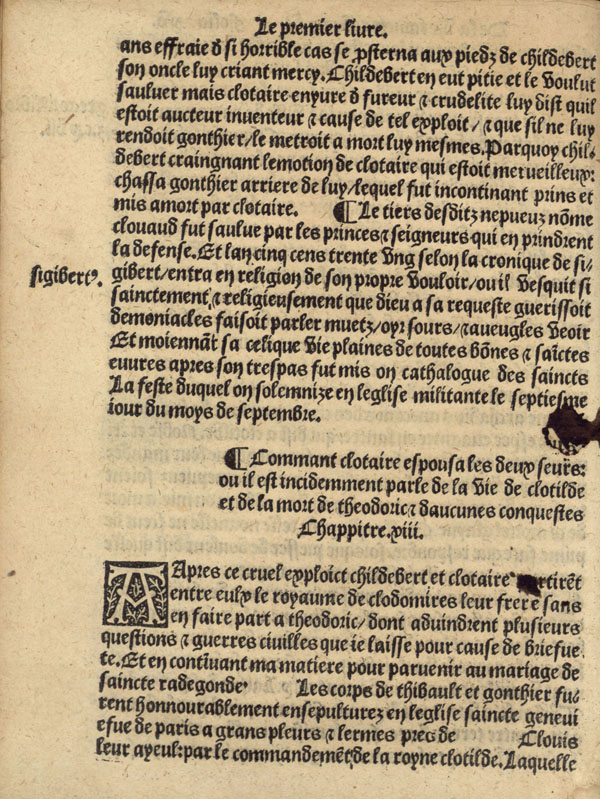 Le premier liure.
ans effraie d̄ si horrible cas se p̲sterna aux piedz de childebert
son oncle luy criant mercy. Childebert en eut pitie et le voulut
sauluer mais clotaire enyure d̄ fureur ⁊ crudelite luy dist quil
estoit aucteur inuenteur ⁊ cause de tel exploit/ ⁊ que sil ne luy
rendoit gonthier/le metroit a mort luy mesmes. Parquoy chil-
debert craingnant lemotion de clotaire qui estoit merueilleux:
chassa gonthier arriere de luy/lequel fut incontinant prins et
mis amort par clotaire. ¶ Le tiers desditz nepueuz nõme
clouaud fut saulue par les princes ⁊ seigneurs qui en prindrent
la defense. Et lan cinq cens trente vng selon la cronique de si-
sigibertꝰ. gibert/entra en religion de son propre vouloir/ou il vesquit si
sainctement ⁊ religieusement que dieu a sa requeste guerissoit
demoniacles faisoit parler muetz/oyr sours/⁊aueugles veoir
Et moiennãt sa celique vie plaines de toutes bõnes ⁊ saĩctes
euures apres son trespas fut mis on cathalogue des saincts
La feste duquel on solemnize en leglise militante le septiesme
iour du moys de septembre.
¶ Commant clotaire espousa les deux seurs:
ou il est incidemment parle de la vie de clotilde
et de la mort de theodoric ⁊ daucunes conquestes
Chappitre.xiii.
Apres ce cruel exploict childebert et clotaire
entre eulx le royaume de clodomires leur frere sans
en faire part a theodoric/ dont aduindrent plusieurs
questions ⁊ guerres ciuilles que ie laisse pour cause de briefue
te. Et en contĩuant ma matiere pour paruenir au mariage de
saincte radegonde' Les corps de thibault et gonthier fu-
rent honnourablement ensepulturez en leglise saincte geneui
efue de paris a grans pleurs ⁊ lermes pres de Clouis
leur ayeul:par le commandemẽt de la royne clotilde. Laquelle